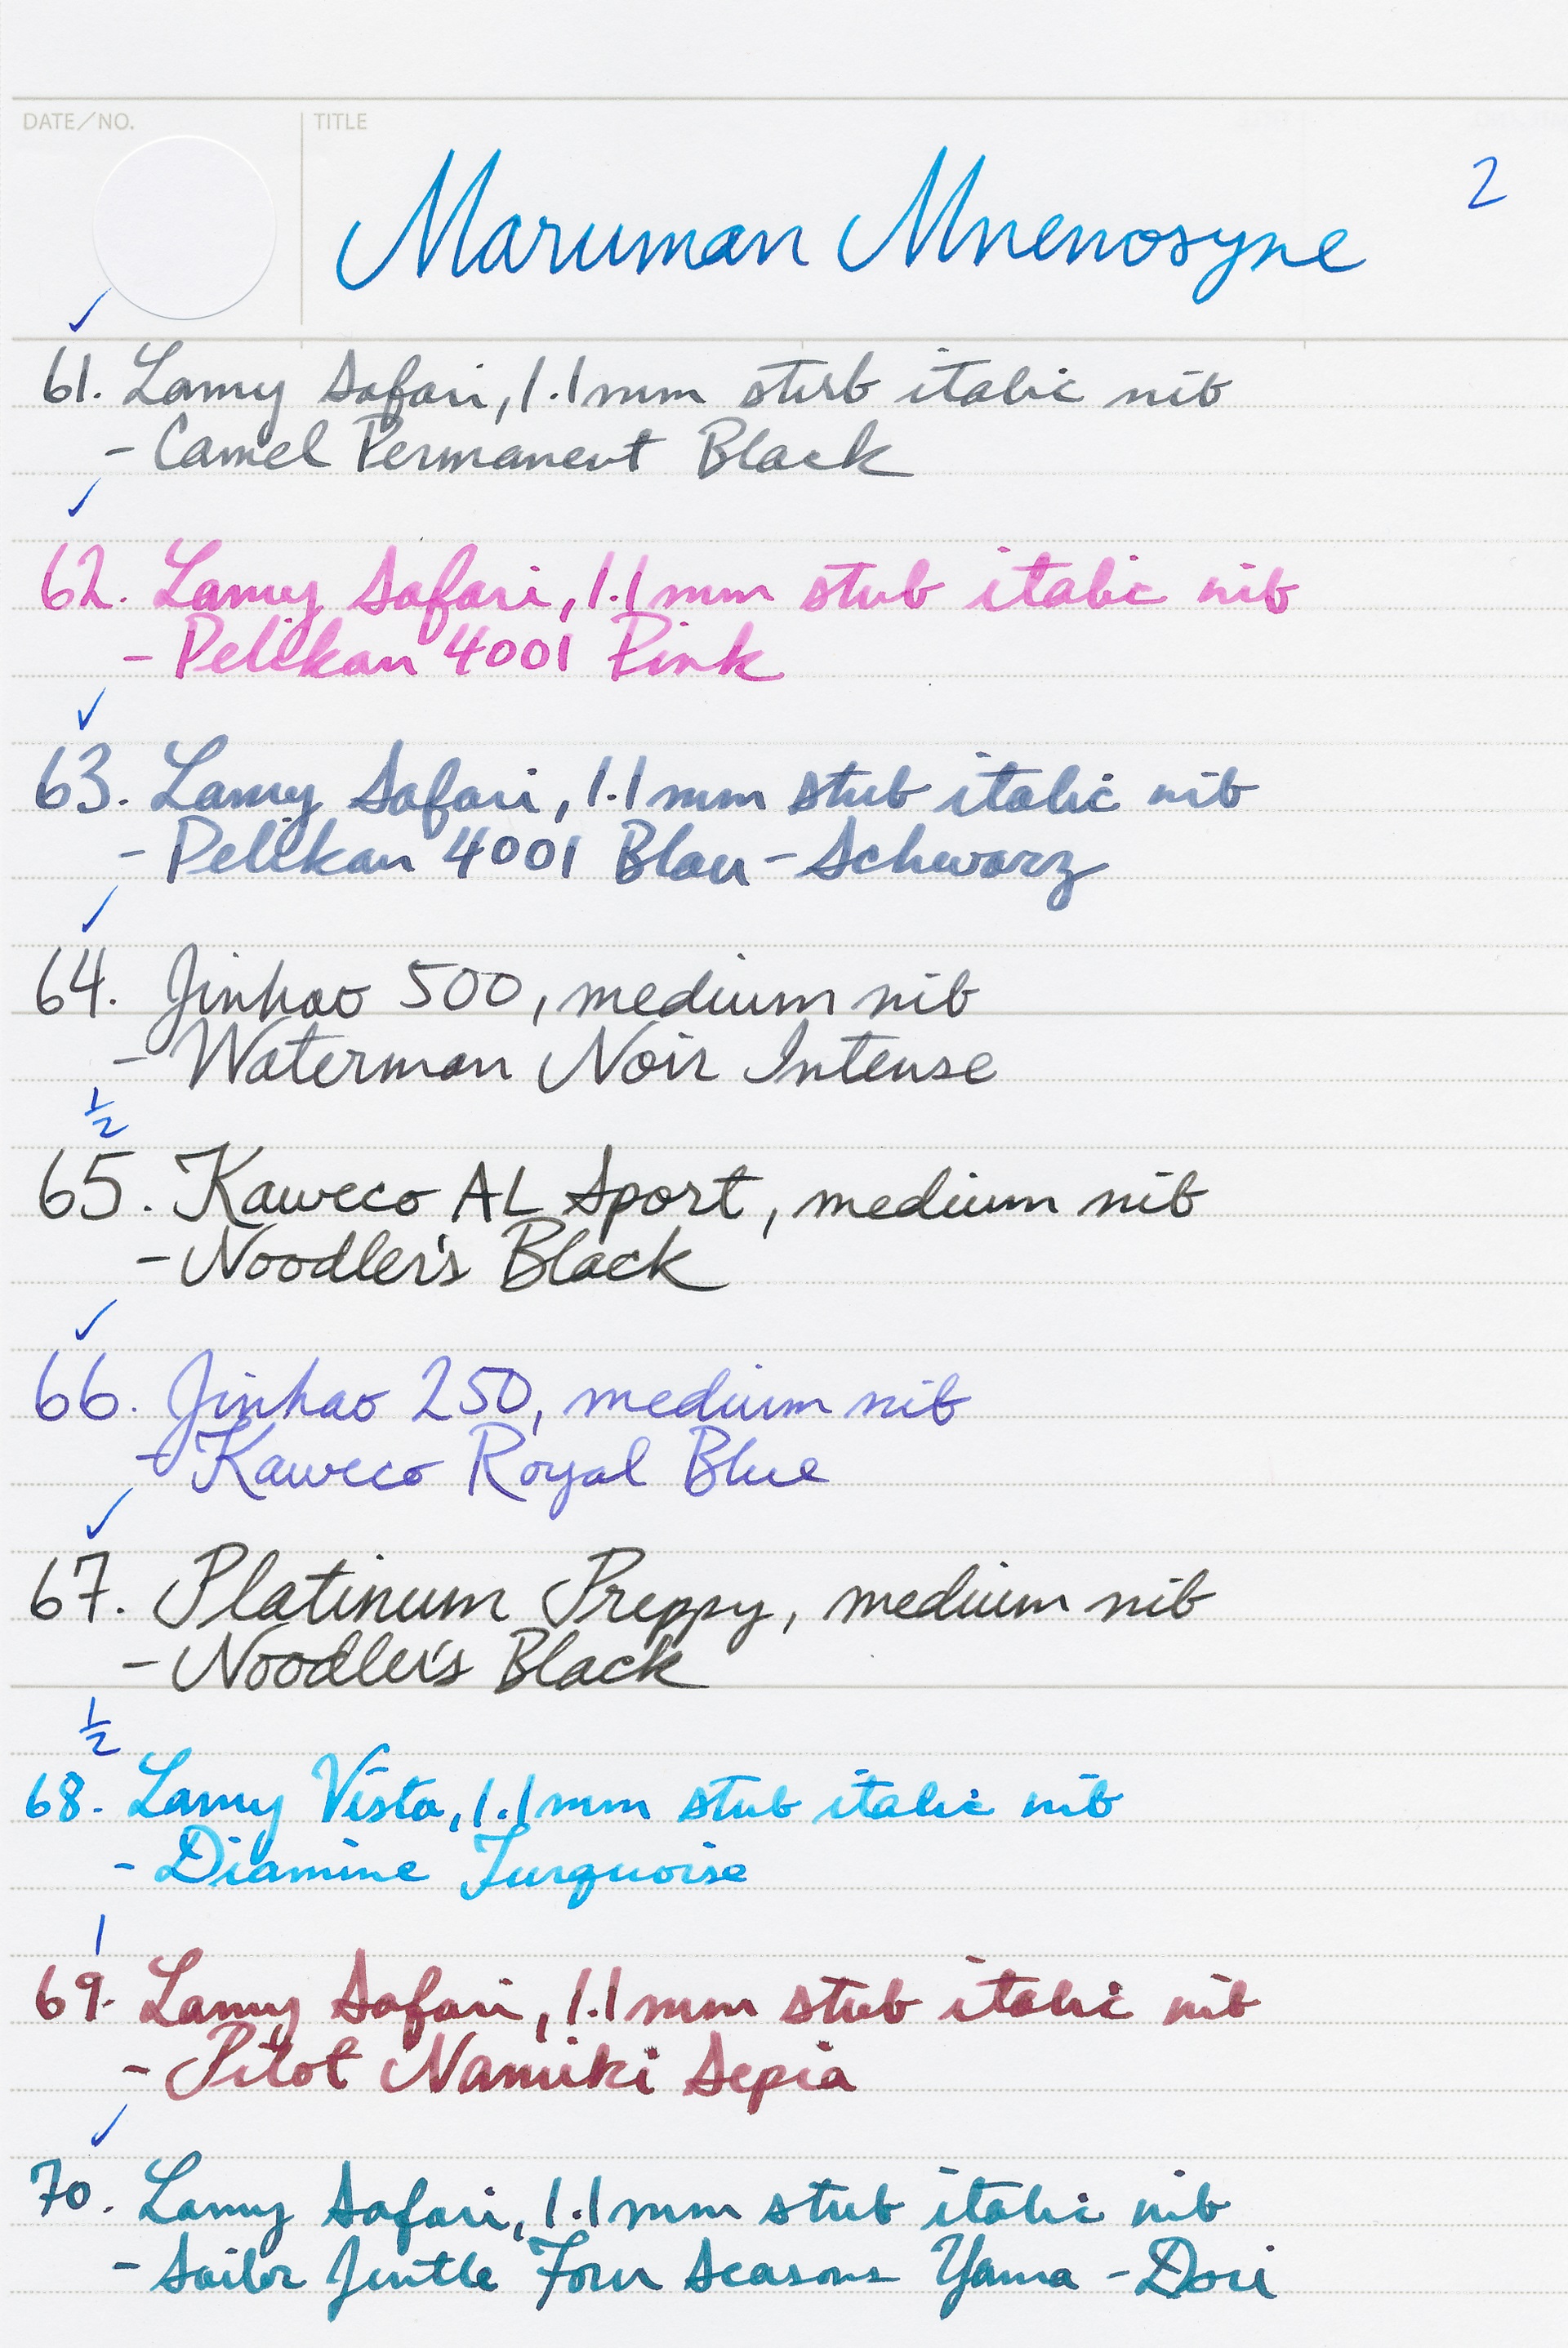 DATE/NO.
TITLE
2
Maruman Mnenosyne
✓
61. Lamy Safari, 1.1mm stub italic nib
- Camel Permanent Black
✓
62. Lamy Safari, 1.1mm stub italic nib
- Pelikan 4001 Pink
✓
63. Lamy Safari, 1.1mm stub italic nib
- Pelikan 4001 Blau-Schwarz
✓
64. Jinhao 500, medium nib
- Waterman Noir Intense
½
65. Kaweco AL Sport, medium nib
- Noodler's Black
✓
66. Jinhao 250, medium nib
- Kaweco Royal Blue
✓
67. Platinum Preppy, medium nib
- Noodler's Black
½
68. Lamy Vista, 1.1mm stub italic nib
- Diamine Turquoise
1
69. Lamy Safari, 1.1mm stub italic nib
- Pilot Namiki Sepia
✓
70. Lamy Safari, 1.1mm stub italic nib
- Sailor Jentle Four Seasons Yama-Dori